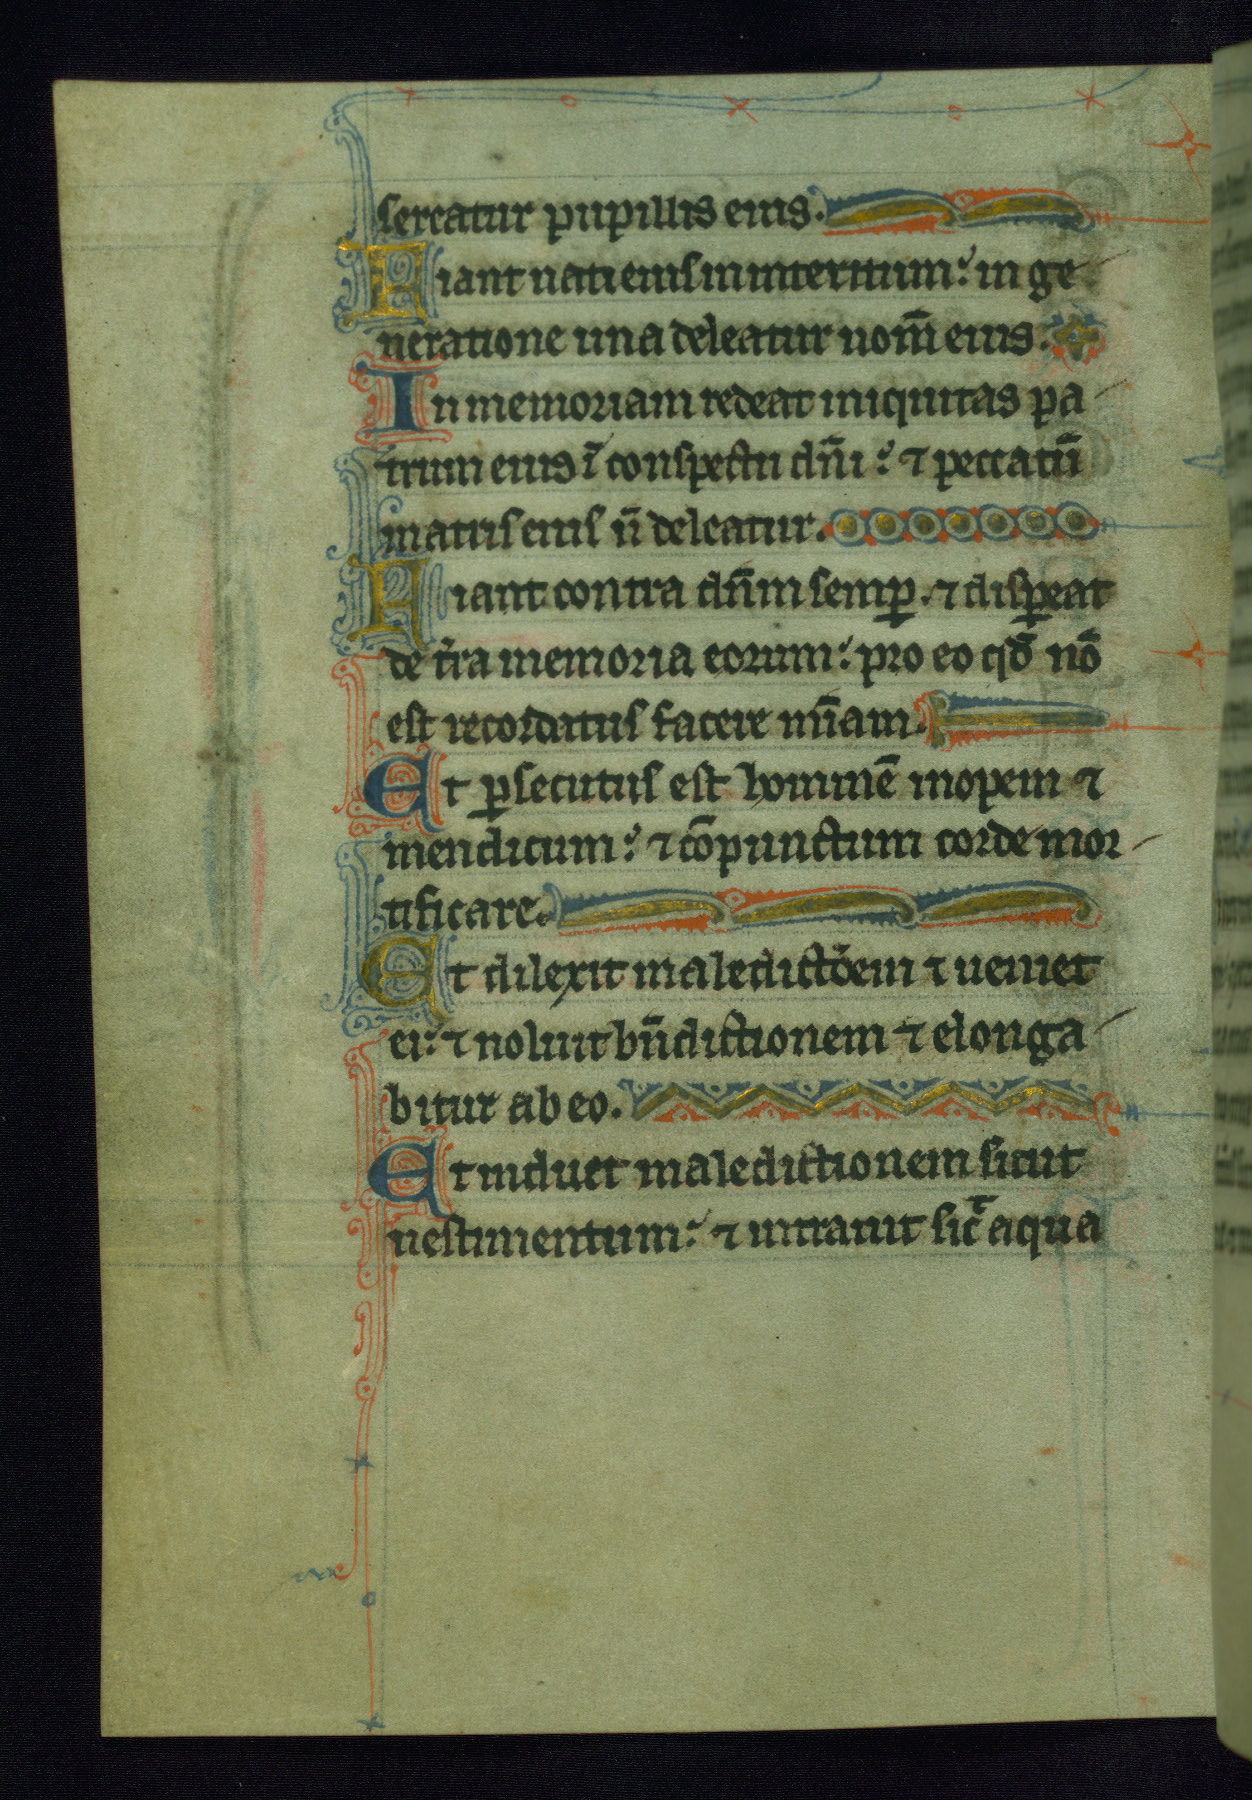 sereatur pupillis eius.
Fiant nati eius in interitum: in ge
neratione una deleatur nom̄ eius.
In memoriam redeat iniquitas pa
trum eius ī conspectu dn̄i: ⁊ peccatū
matris eius n̄ deleatur.
Fiant contra dn̄m semꝑ. ⁊ disꝑeat
de t̄ra memoria eorum: pro eo qd̄ nō
est recordatus facere mīam.
Et ꝑsecutus est hominē inopem ⁊
mendicum: ⁊ cōpunctum corde mor
tificare.
Et dilexit maledictōem ⁊ ueniet
ei: ⁊ noluit bn̄dictionem ⁊ elonga
bitur ab eo.
Et induet maledictionem sicut
uestimentum: ⁊ intrauit sic̄ aqua